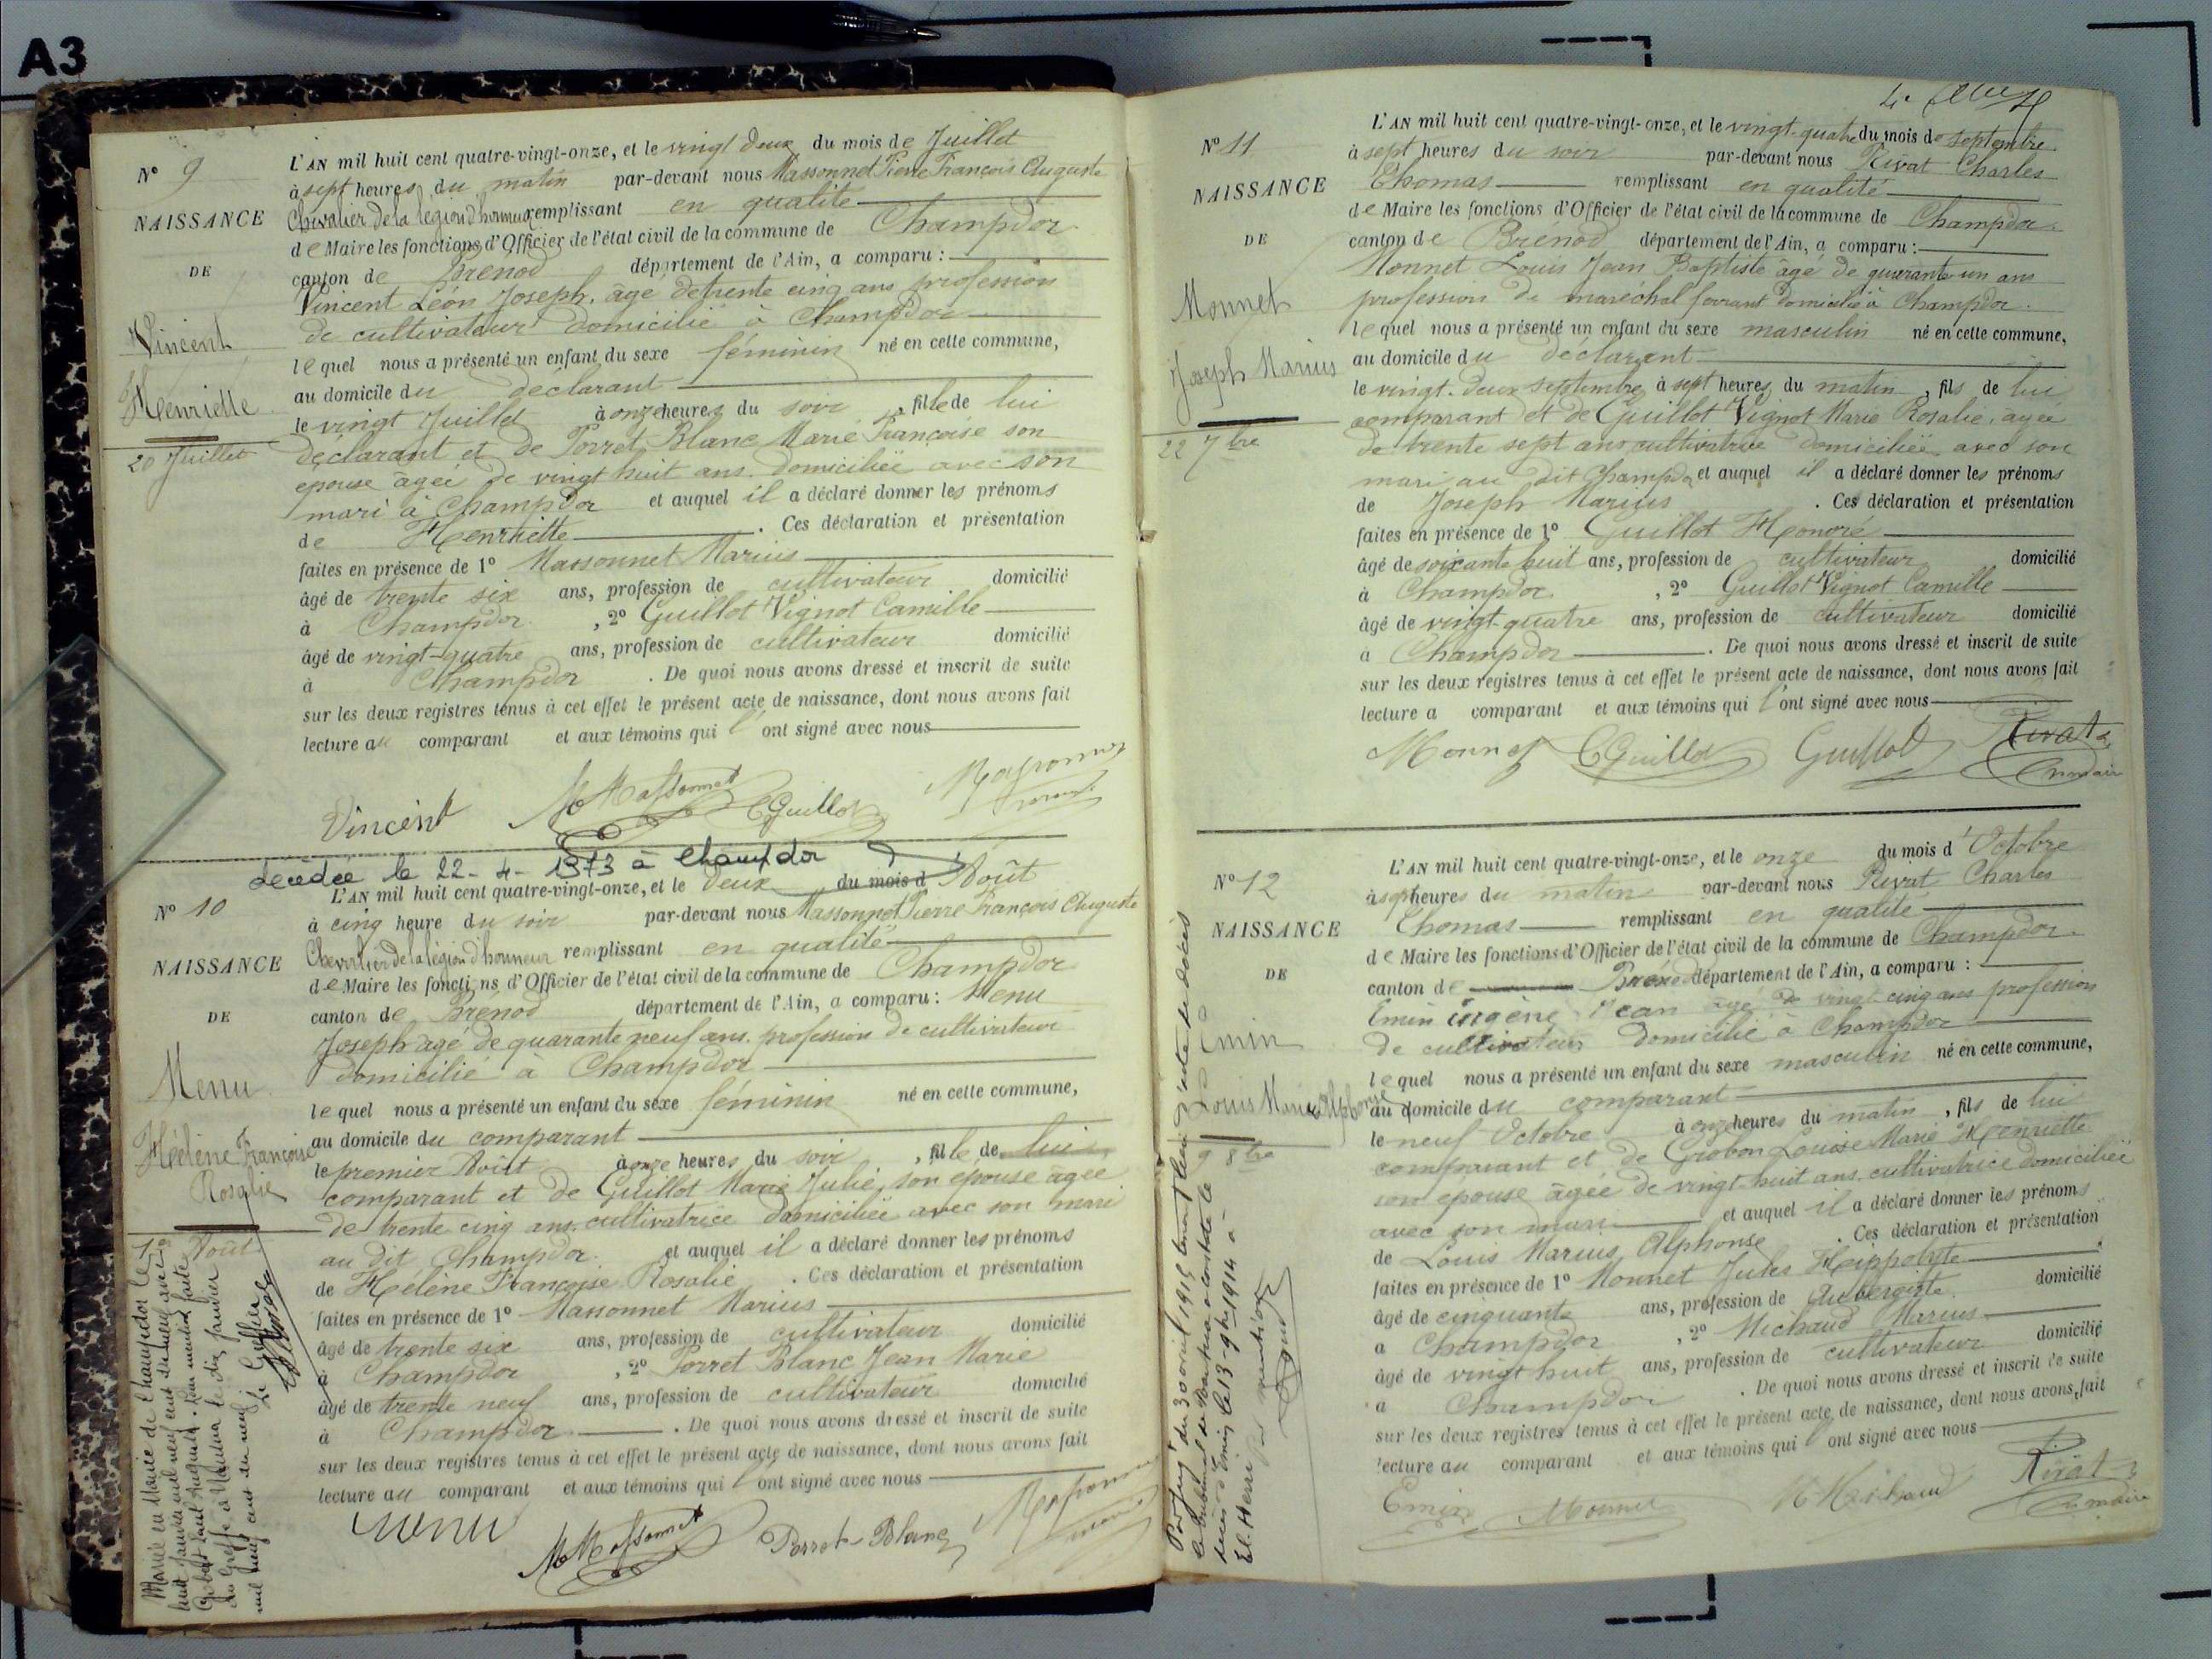 A3
N° 9
NAISSANCE
DE
Vincent
Henriette
20 Juillet
L'AN mil huit cent quatre-vingt-onze, et le vingt deux du mois de Juillet
à sept heures du matin par-devant nous Massonnet Pierre François Auguste
Chevalier de la légion d'honneur remplissant en qualité
de Maire les fonctions d'Officier de l'état civil de la commune de Champdor
canton de Brénod département de l'Ain, a comparu :
Vincent Léon Joseph, âgé de trente cinq ans profession
de cultivateur domicilié à Champdor
lequel nous a présenté un enfant du sexe féminin né en cette commune,
au domicile du déclarant
le vingt Juillet à onze heures du soir, fille de lui
déclarant et de Porret Blanc Marie Françoise son
epouse agée de vingt huit ans domiciliée avec son
mari à Champdor et auquel il a déclaré donner les prénoms
de Henriette. Ces déclaration et présentation
faites en présence de 1° Massonnet Marius
âgé de trente six ans, profession de cultivateur domicilié
à Champdor, 2° Guillot Vignot Camille
âgé de vingt-quatre ans, profession de cultivateur domicilié
à Champdor. De quoi nous avons dressé et inscrit de suite
sur les deux registres tenus à cet effet le présent acte de naissance, dont nous avons fait
lecture au comparant et aux témoins qui l'ont signé avec nous
Vincent M Massonnet C Guillot Massonnet
décédée le 22-4-1973 à Champdor
N° 10
NAISSANCE
DE
Menu
Hélène Françoise
Rosalie
1er Août
L'AN mil huit cent quatre-vingt-onze, et le deux du mois d'Août
à cinq heure du soir par-devant nous Massonnet Pierre François Auguste
Chevalier de la légion d'honneur remplissant en qualité
de Maire les fonctions d'Officier de l'état civil de la commune de Champdor
canton de Brénod département de l'Ain, a comparu : Menu
Joseph agé de quarante neuf ans profession de cultivateur
domicilié à Champdor
lequel nous a présenté un enfant du sexe féminin né en cette commune,
au domicile du comparant
le premier Août à onze heures du soir, fille de lui
comparant et de Guillot Marie Julie, son epouse âgée
de trente cinq ans cultivatrice domiciliée avec son mari
au dit Champdor. et auquel il a déclaré donner les prénoms
de Hélène Françoise Rosalie. Ces déclaration et présentation
faites en présence de 1° Massonnet Marius
âgé de trente six ans, profession de cultivateur domicilié
à Champdor, 2° Porret Blanc Jean Marie
âgé de trente neuf ans, profession de cultivateur domicilié
à Champdor. De quoi nous avons dressé et inscrit de suite
sur les deux registres tenus à cet effet le présent acte de naissance, dont nous avons fait
lecture au comparant et aux témoins qui l'ont signé avec nous
Menu M Massonnet Porret-Blanc Massonnet
Mariée en Mairie de Champdor le
huit janvier mil neuf cent
du Greffe à Nantua le dix janvier
mil neuf cent
Le Greffier
N° 11
NAISSANCE
DE
Monnet
Joseph Marius
22 7bre
L'AN mil huit cent quatre-vingt-onze, et le vingt-quatre du mois de septembre
à sept heures du soir par-devant nous Rivat Charles
Thomas remplissant en qualité
de Maire les fonctions d'Officier de l'état civil de la commune de Champdor
canton de Brenod département de l'Ain, a comparu :
Monnet Louis Jean Baptiste âgé de quarante un ans
profession de maréchal ferrant domicilié à Champdor.
lequel nous a présenté un enfant du sexe masculin né en cette commune,
au domicile du déclarant
le vingt-deux septembre à sept heures du matin, fils de lui
comparant et de Guillot Vignot Marie Rosalie, agée
de trente sept ans cultivatrice domiciliée avec son
mari au dit Champdor et auquel il a déclaré donner les prénoms
de Joseph Marius. Ces déclaration et présentation
faites en présence de 1° Guillot Honoré
âgé de soixante huit ans, profession de cultivateur domicilié
à Champdor, 2° Guillot Vignot Camille
âgé de vingt-quatre ans, profession de cultivateur domicilié
à Champdor. De quoi nous avons dressé et inscrit de suite
sur les deux registres tenus à cet effet le présent acte de naissance, dont nous avons fait
lecture a comparant et aux témoins qui l'ont signé avec nous
Monnet C Guillot Guillot Rivat
N° 12
NAISSANCE
DE
Emin
Louis Marius Alphonse
9 8bre
L'AN mil huit cent quatre-vingt-onze, et le onze du mois d'Octobre
à sept heures du matin par-devant nous Rivat Charles
Thomas remplissant en qualité
de Maire les fonctions d'Officier de l'état civil de la commune de Champdor
canton de Brénod département de l'Ain, a comparu :
Emin Eugène Jean âgé de vingt-cinq ans profession
de cultivateur domicilié à Champdor
lequel nous a présenté un enfant du sexe masculin né en cette commune,
au domicile du comparant
le neuf Octobre à onze heures du matin, fils de lui
comparant et de Grobon Louise Marie Henriette
son epouse âgée de vingt-huit ans cultivatrice domiciliée
avec son mari et auquel il a déclaré donner les prénoms
de Louis Marius Alphonse. Ces déclaration et présentation
faites en présence de 1° Monnet Jules Hippolyte
âgé de cinquante ans, profession de Aubergiste domicilié
à Champdor, 2° Michaud Marius
âgé de vingt huit ans, profession de cultivateur domicilié
à Champdor. De quoi nous avons dressé et inscrit de suite
sur les deux registres tenus à cet effet le présent acte de naissance, dont nous avons fait
lecture au comparant et aux témoins qui l'ont signé avec nous
Emin Monnet M Michaud Rivat
Par jugt du 30 avril 1915 tenant lieu d'acte de décès
le tribunal de Nantua a constaté le
décès d'Emin le 13 9bre 1914 à
St. Henri